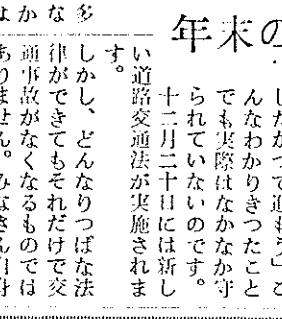 年末の
したがつて進もう」こ
んなわかりきつたこと
でも実際はなかなか守
られていないのです。
十二月二十日には新し
い道路交通法が実施されま
す。
しかし、どんなりつぱな法
律ができてもそれだけで交
通事故がなくなるものでは
ありません。みなさん自身
多
な
か